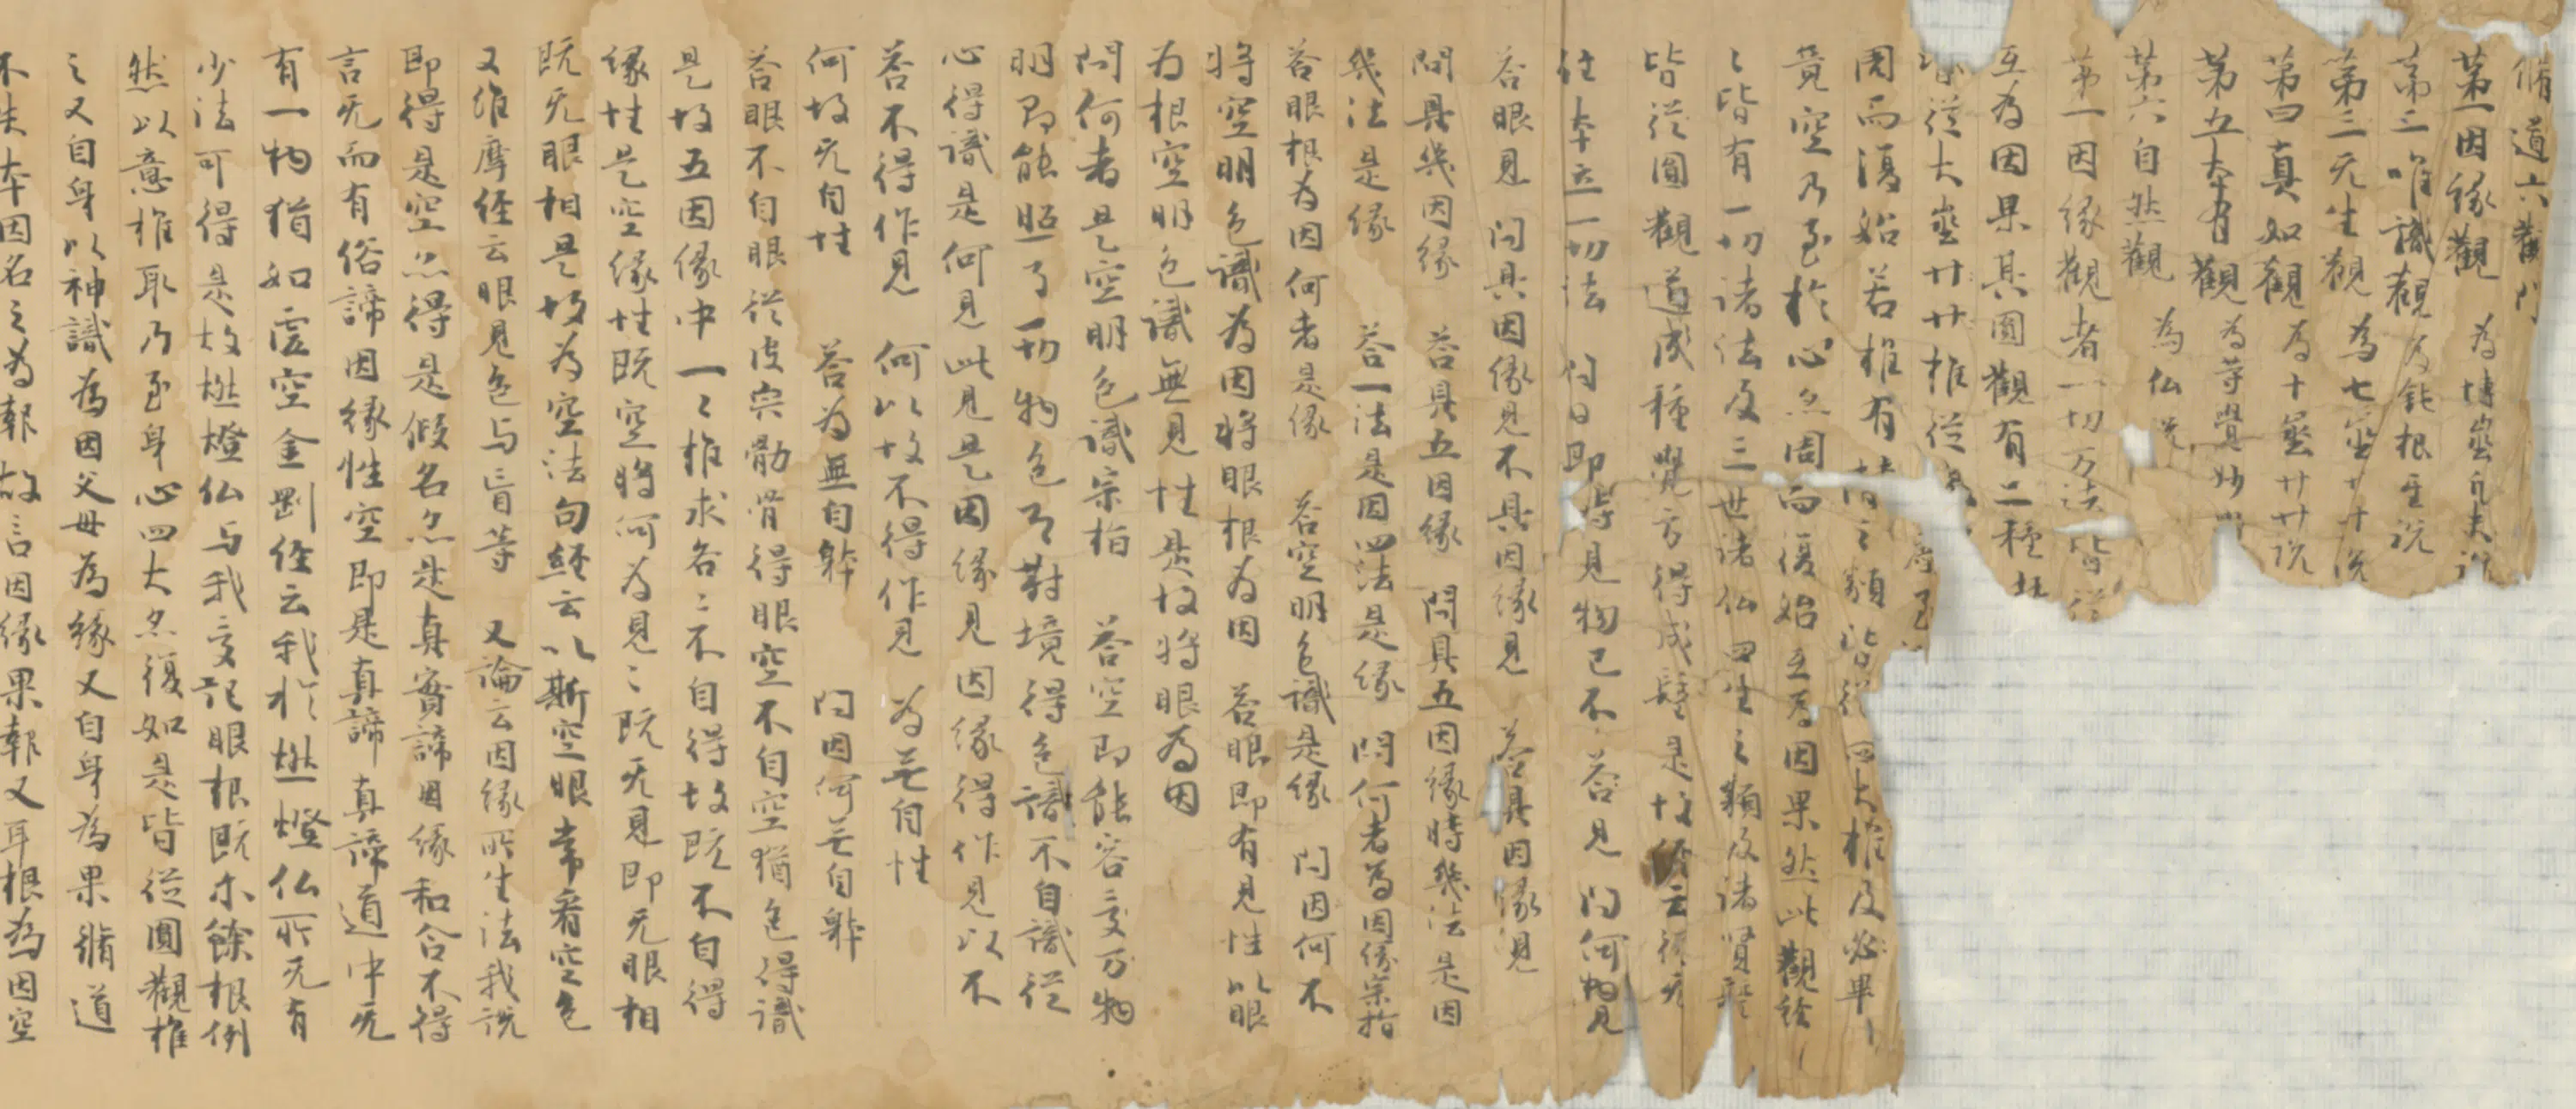 脩道六觀門
第一因緣觀 為博𡧯凡夫說
第二唯識觀 為鈍根
第三无生觀 為七
第四真如觀 為十 說
第五本有觀 為等覺妙
第六自然觀 為仏
第一因緣觀者一切万法皆從
互為因果其圓觀有二種
從大 推從
周而復始若推有情之類皆從四大推及必畢
竟空乃至於心亦周而復始互為因果然此觀
〻皆有一切諸法及三世諸仏四生之類及諸賢聖
皆從圓觀道成種覺方得成 是故經云從无
住本立一切法 問曰即得見物已不 荅見 問何物見
荅眼見 問具因緣見不具因緣見 荅具因緣見
問具幾因緣 荅具五因緣 問具五因緣時幾法是因
幾法是緣 荅一法是因四法是緣 問何者為因緣宗指
荅眼根為因何者是緣 荅空明色識是緣 問因何不
將空明色識為因將眼根為因 荅眼即有見性以眼
為根空明色識無見性是故將眼為因
問何者是空明色識宗指 荅空即能容受万物
明即能照了一切物色了對境得色識不自識從
心得識是何見此見是因緣見因緣得作見以不
荅不得作見 何以故不得作見 為无自性
何故无自性 荅為無自躰 問因何无自躰
荅眼不自眼從皮宍骨得眼空不自空猶色得識
是故五因緣中一〻推求各〻不自得故既不自得
緣性是空緣性既空將何為見〻既无見即无眼相
既无眼相是故為空法句經云以斯空眼常看空色
又維摩經云眼見色与盲等 又論云因緣所生法我說
即得是空亦得是假名亦是真實諦因緣和合不得
言无而有俗諦因緣性空即是真諦真諦道中无
有一物猶如虛空金剛經云我於燃燈仏所无有
少法可得是故燃燈仏与我受記眼根既尒餘根例
然以意推取乃至身心四大亦復如是皆從圓觀推
之又自身以神識為因父母為緣又自身為果脩道
不失本因名之為報故言因緣果報又耳根為因空